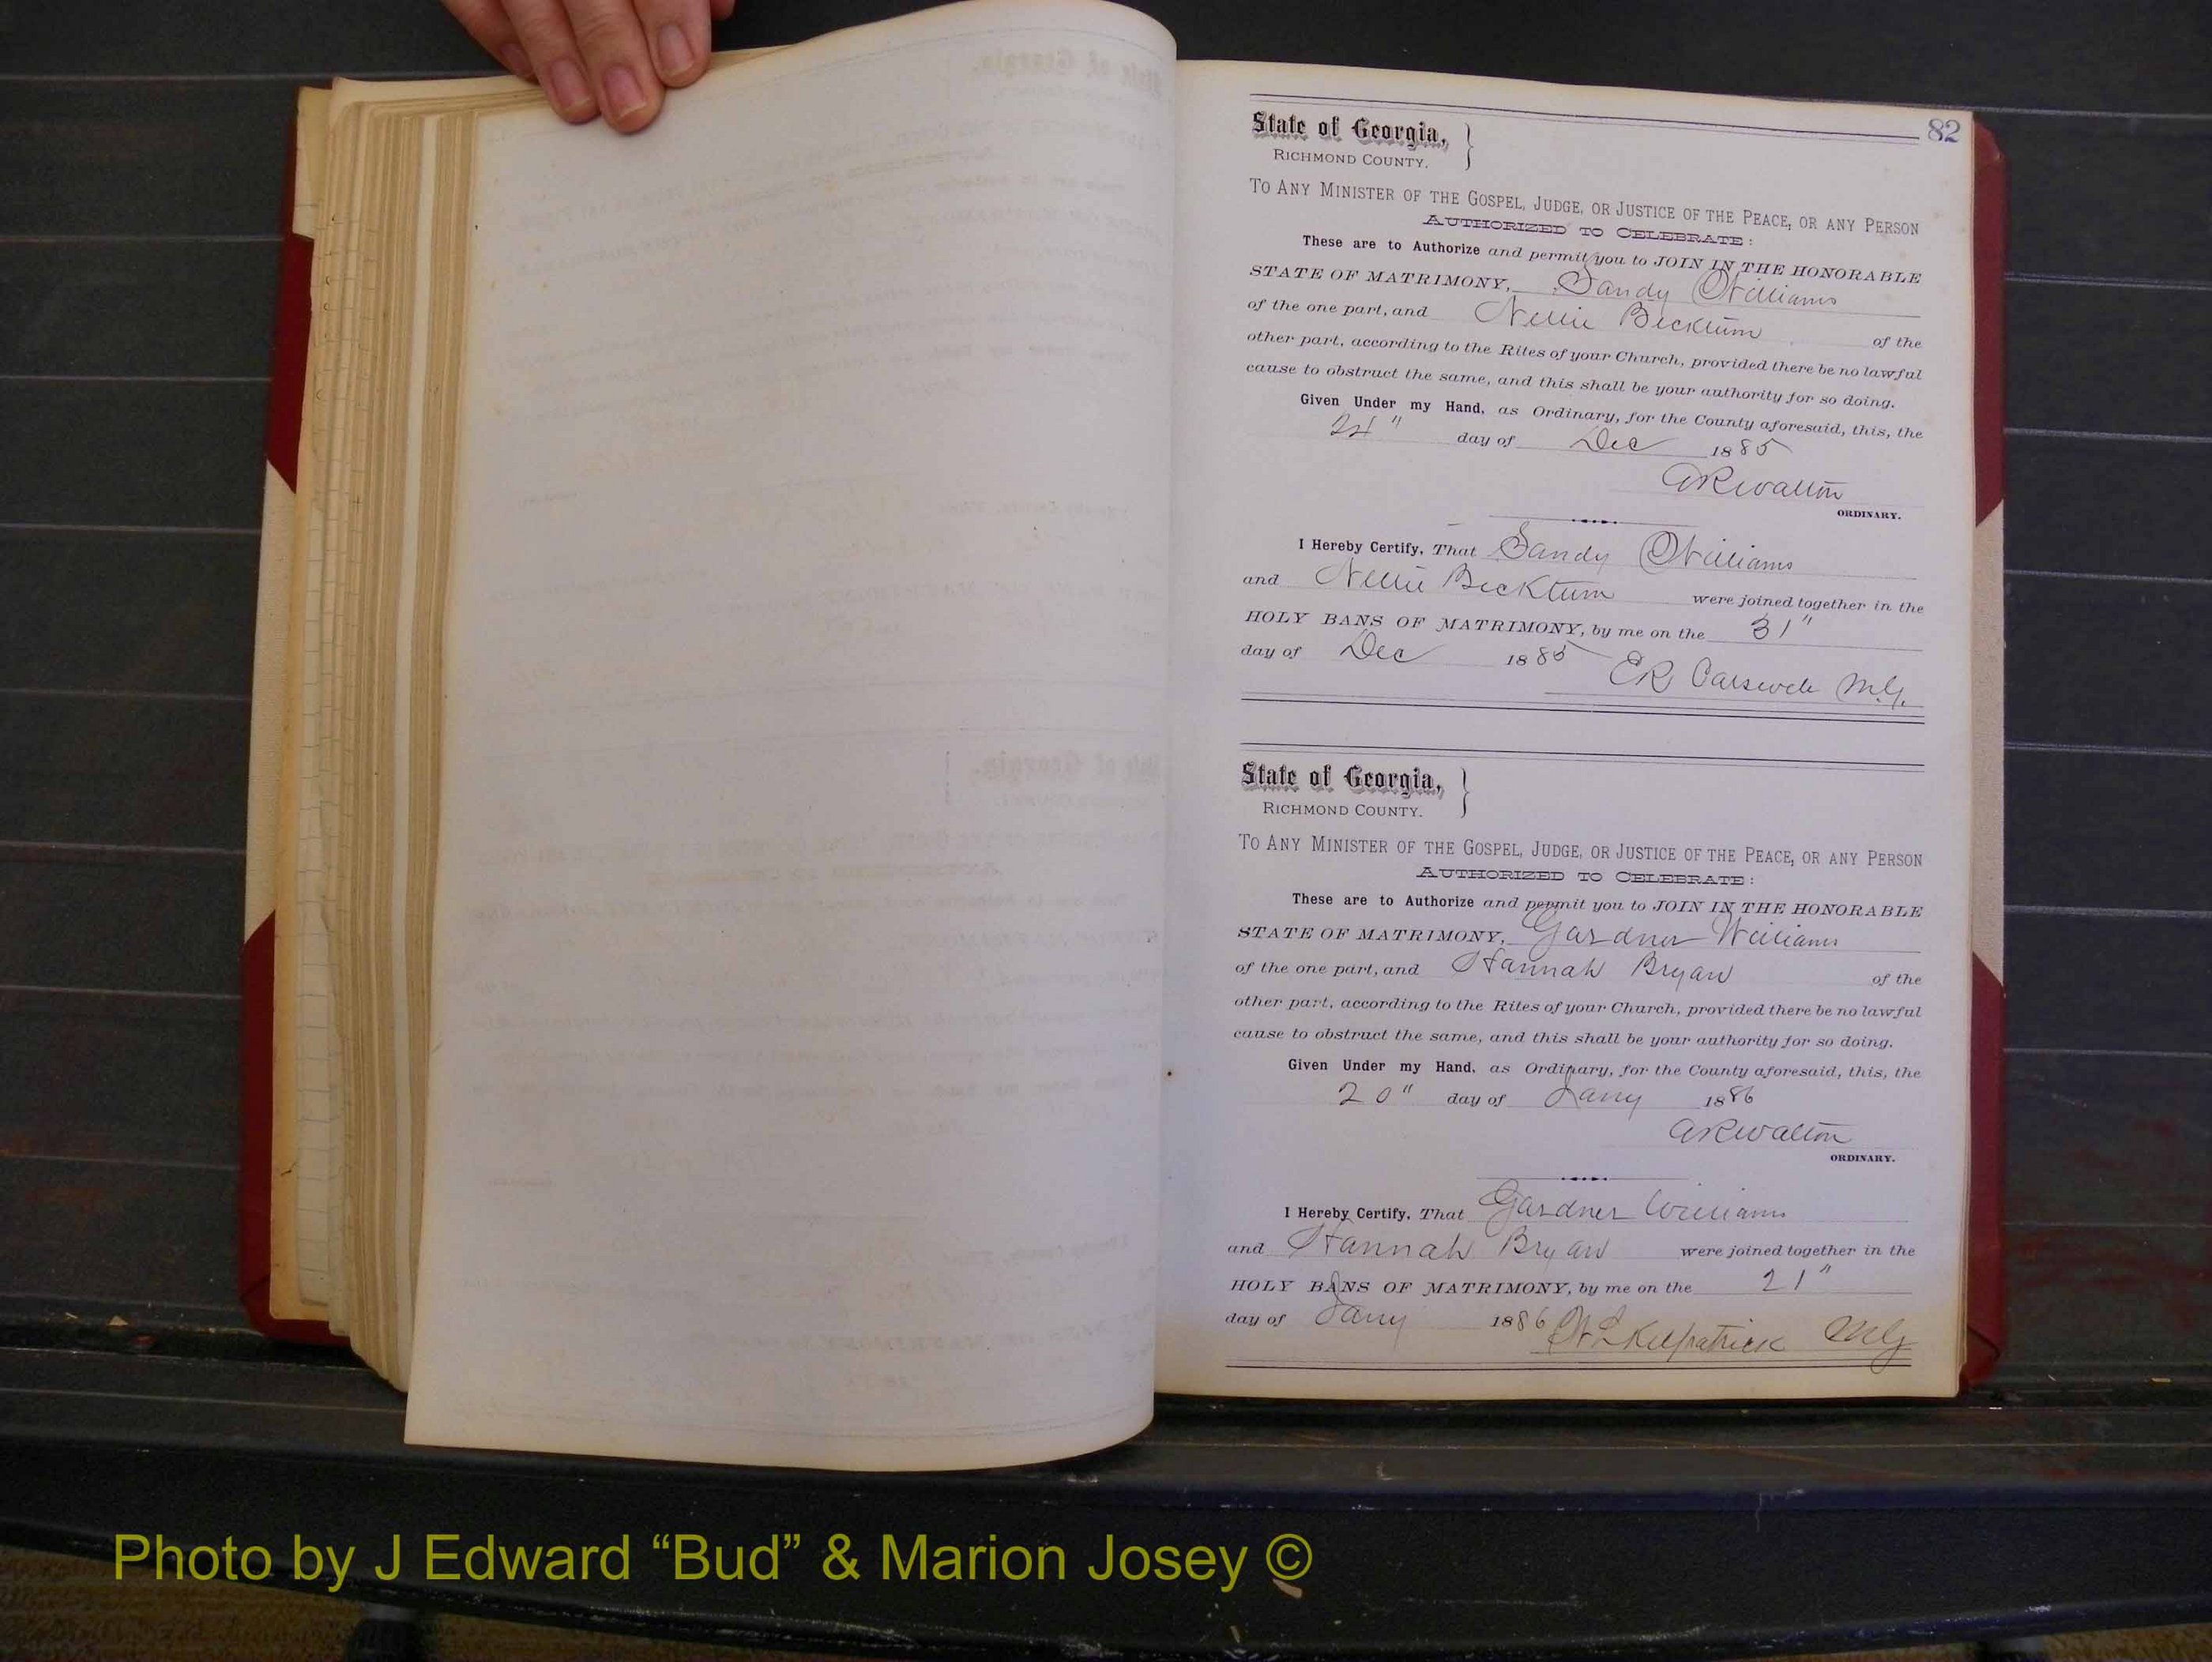 82
State of Georgia,
RICHMOND COUNTY.
TO ANY MINISTER OF THE GOSPEL, JUDGE, OR JUSTICE OF THE PEACE, OR ANY PERSON
AUTHORIZED TO CELEBRATE:
These are to Authorize and permit you to JOIN IN THE HONORABLE
STATE OF MATRIMONY, Sandy Williams
of the one part, and Nellie Becktum of the
other part, according to the Rites of your Church, provided there be no lawful
cause to obstruct the same, and this shall be your authority for so doing.
Given Under my Hand, as Ordinary, for the County aforesaid, this, the
24" day of Dec 1885
ARWalton
ORDINARY.
I Hereby Certify, That Sandy Williams
and Nellie Becktum were joined together in the
HOLY BANS OF MATRIMONY, by me on the 31"
day of Dec 1885 ER Carswell M.G.
State of Georgia,
RICHMOND COUNTY.
TO ANY MINISTER OF THE GOSPEL, JUDGE, OR JUSTICE OF THE PEACE, OR ANY PERSON
AUTHORIZED TO CELEBRATE:
These are to Authorize and permit you to JOIN IN THE HONORABLE
STATE OF MATRIMONY, Gardner Williams
of the one part, and Hannah Bryan of the
other part, according to the Rites of your Church, provided there be no lawful
cause to obstruct the same, and this shall be your authority for so doing.
Given Under my Hand, as Ordinary, for the County aforesaid, this, the
20" day of Jany 1886
ARWalton
ORDINARY.
I Hereby Certify, That Gardner Williams
and Hannah Bryan were joined together in the
HOLY BANS OF MATRIMONY, by me on the 21"
day of Jany 1886 W L Kilpatrick MG
Photo by J Edward “Bud” & Marion Josey ©